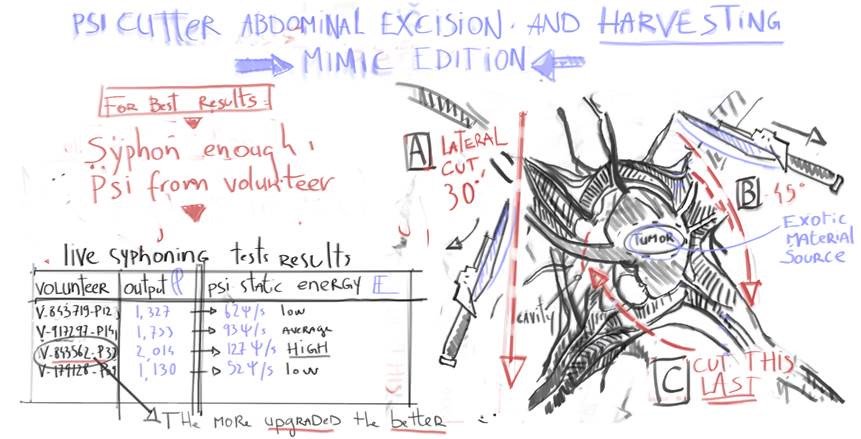 PSI CUTTER ABDOMINAL EXCISION AND HARVESTING
MIMIC EDITION
FOR BEST RESULTS
Syphon enough
Psi from volunteer
live syphoning tests results
VOLUNTEER OUTPUT psi static energy E
V-843719-P12 1,327 62Ψ/s low
V-917297-P14 1,733 93Ψ/s AVERAGE
V-843562-P37 2,014 127Ψ/s HIGH
1,130 52Ψ/s low
THE MORE upgraded the better
A LATERAL
CUT
30°
B 45°
TUMOR
EXOTIC
MATERIAL
SOURCE
CAVITY
C CUT THIS
LAST